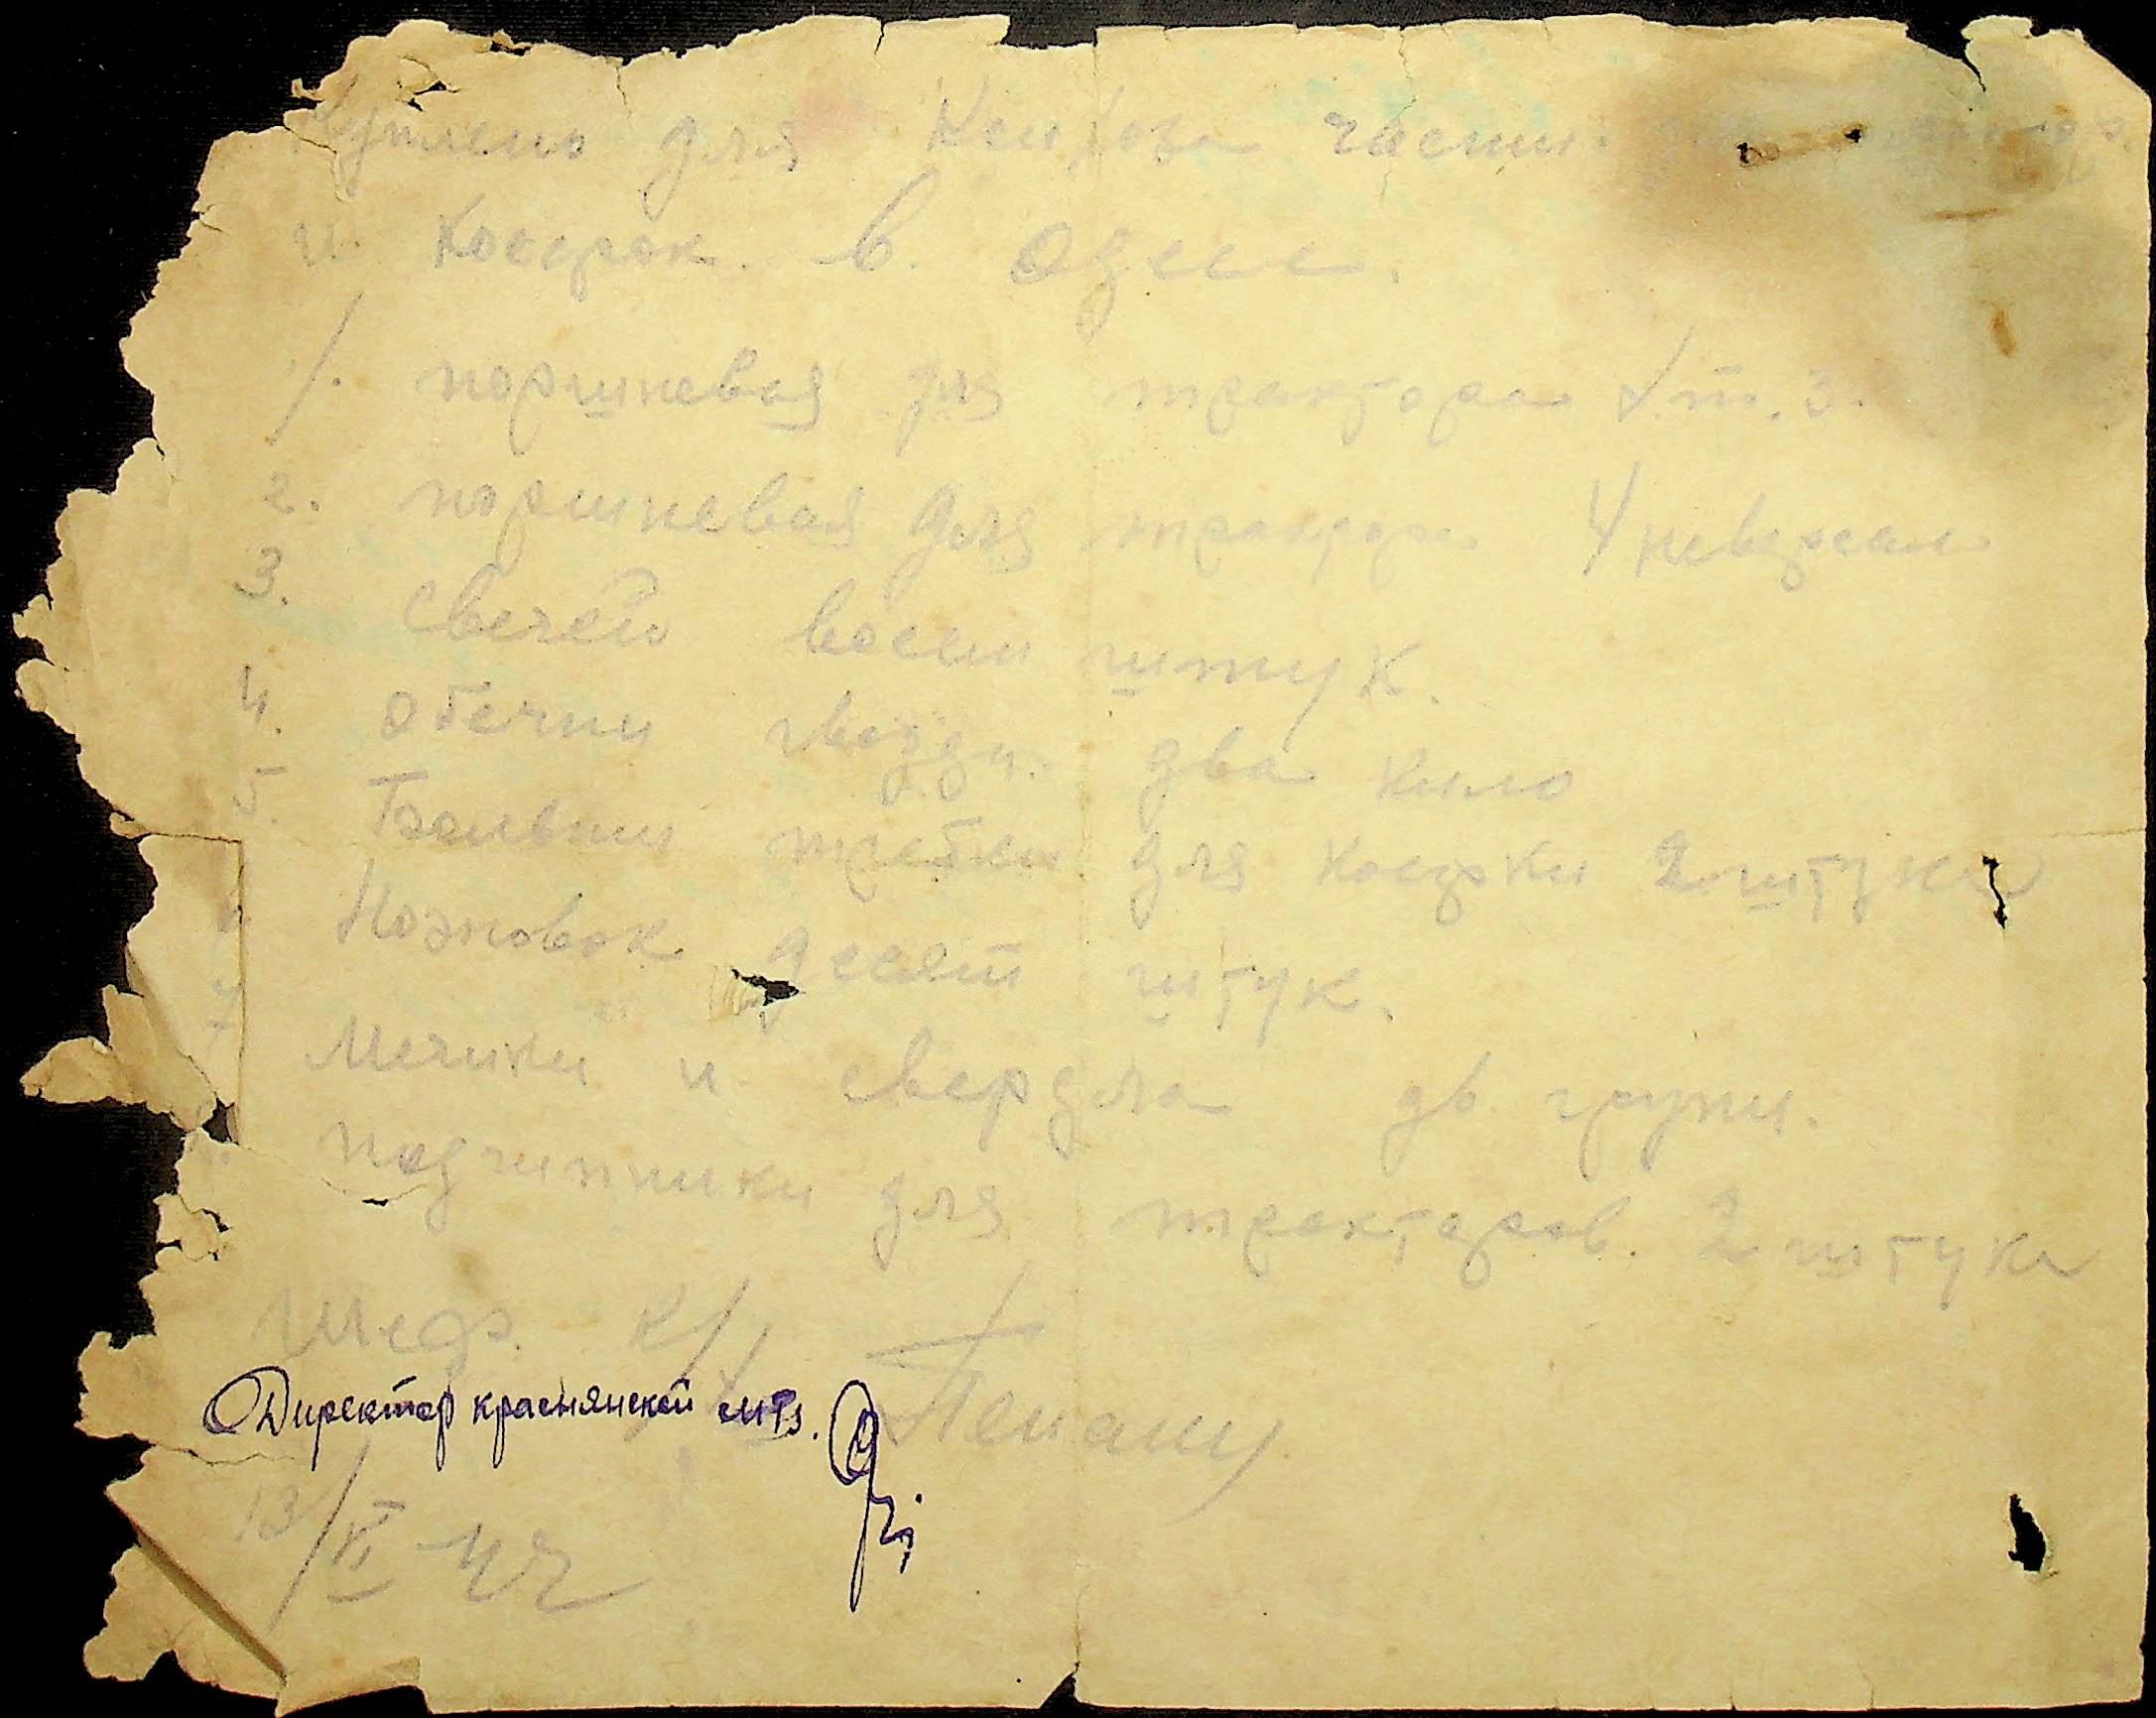 Куплено для Колхоза части.
и. Косярок. в. Одесе.
1. поршневая для трактора х.т.з.
2. поршневая для трактора Универсал
3. свечей восем штук.
4. гвозди. два кило
5. для косярки 2 штуки
6. Ножовок десят штук.
7 Мечики и. свердла дв. групи.
подчипники для тракторов. 2 штуки
Шеф.
Директор краснянской мтs.
13/XI-42